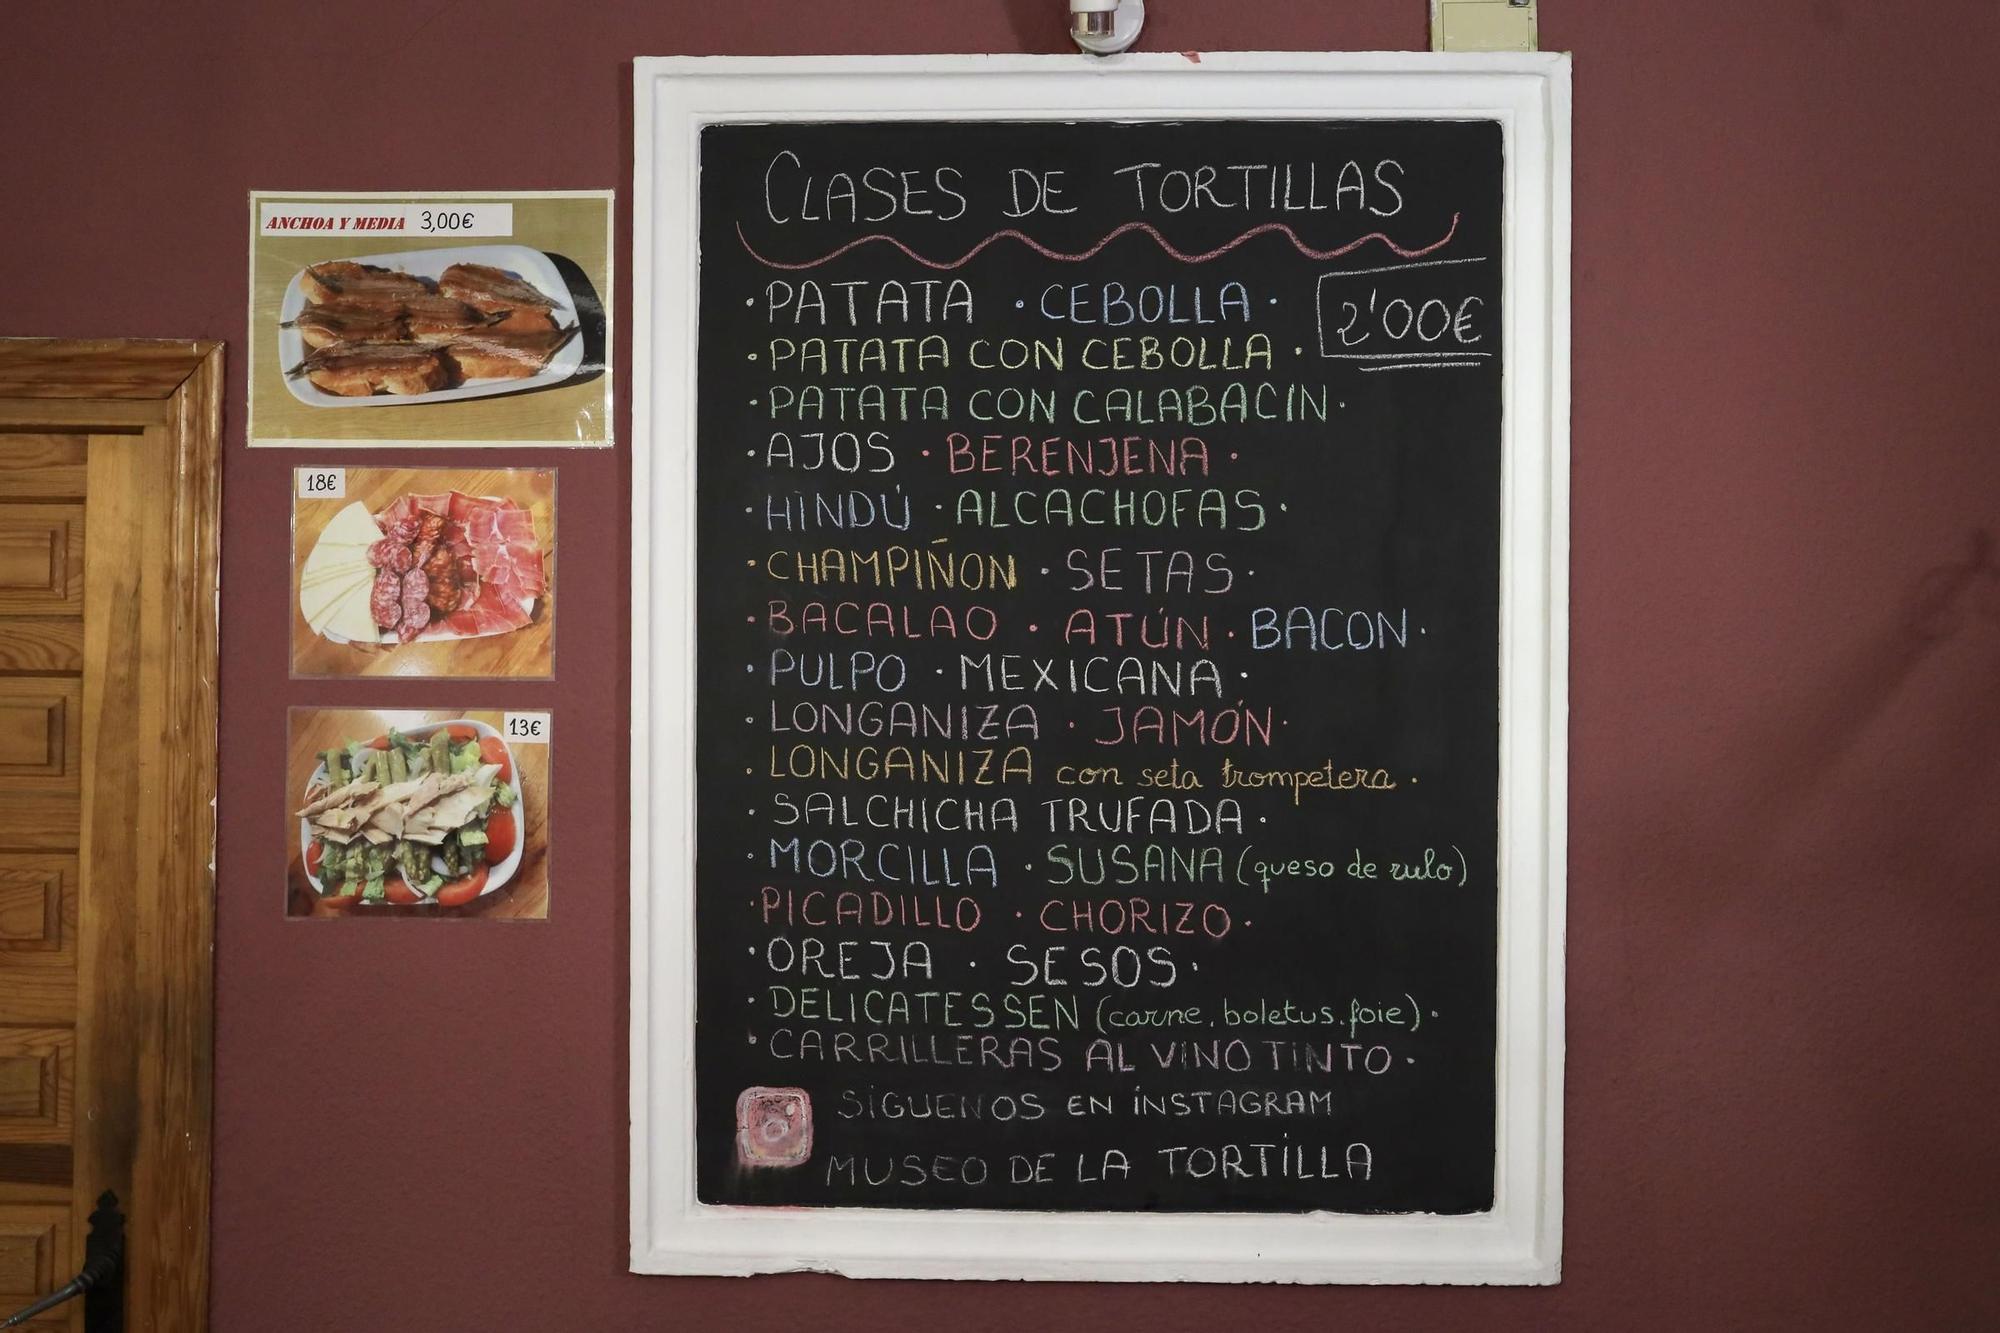 ANCHOA Y MEDIA 3,00€
18€
13€
CLASES DE TORTILLAS
2'00€
·PATATA ·CEBOLLA·
·PATATA CON CEBOLLA·
·PATATA CON CALABACIN·
·AJOS ·BERENJENA·
·HINDÚ ·ALCACHOFAS·
·CHAMPIÑON ·SETAS·
·BACALAO ·ATÚN·BACON·
·PULPO ·MEXICANA·
·LONGANIZA ·JAMÓN·
·LONGANIZA con seta trompetera·
·SALCHICHA TRUFADA·
·MORCILLA ·SUSANA (queso de rulo)
·PICADILLO ·CHORIZO·
·OREJA ·SESOS·
·DELICATESSEN (carne, boletus, foie)·
·CARRILLERAS AL VINO TINTO·
SiGUENOS EN iNSTAGRAM
MUSEO DE LA TORTiLLA